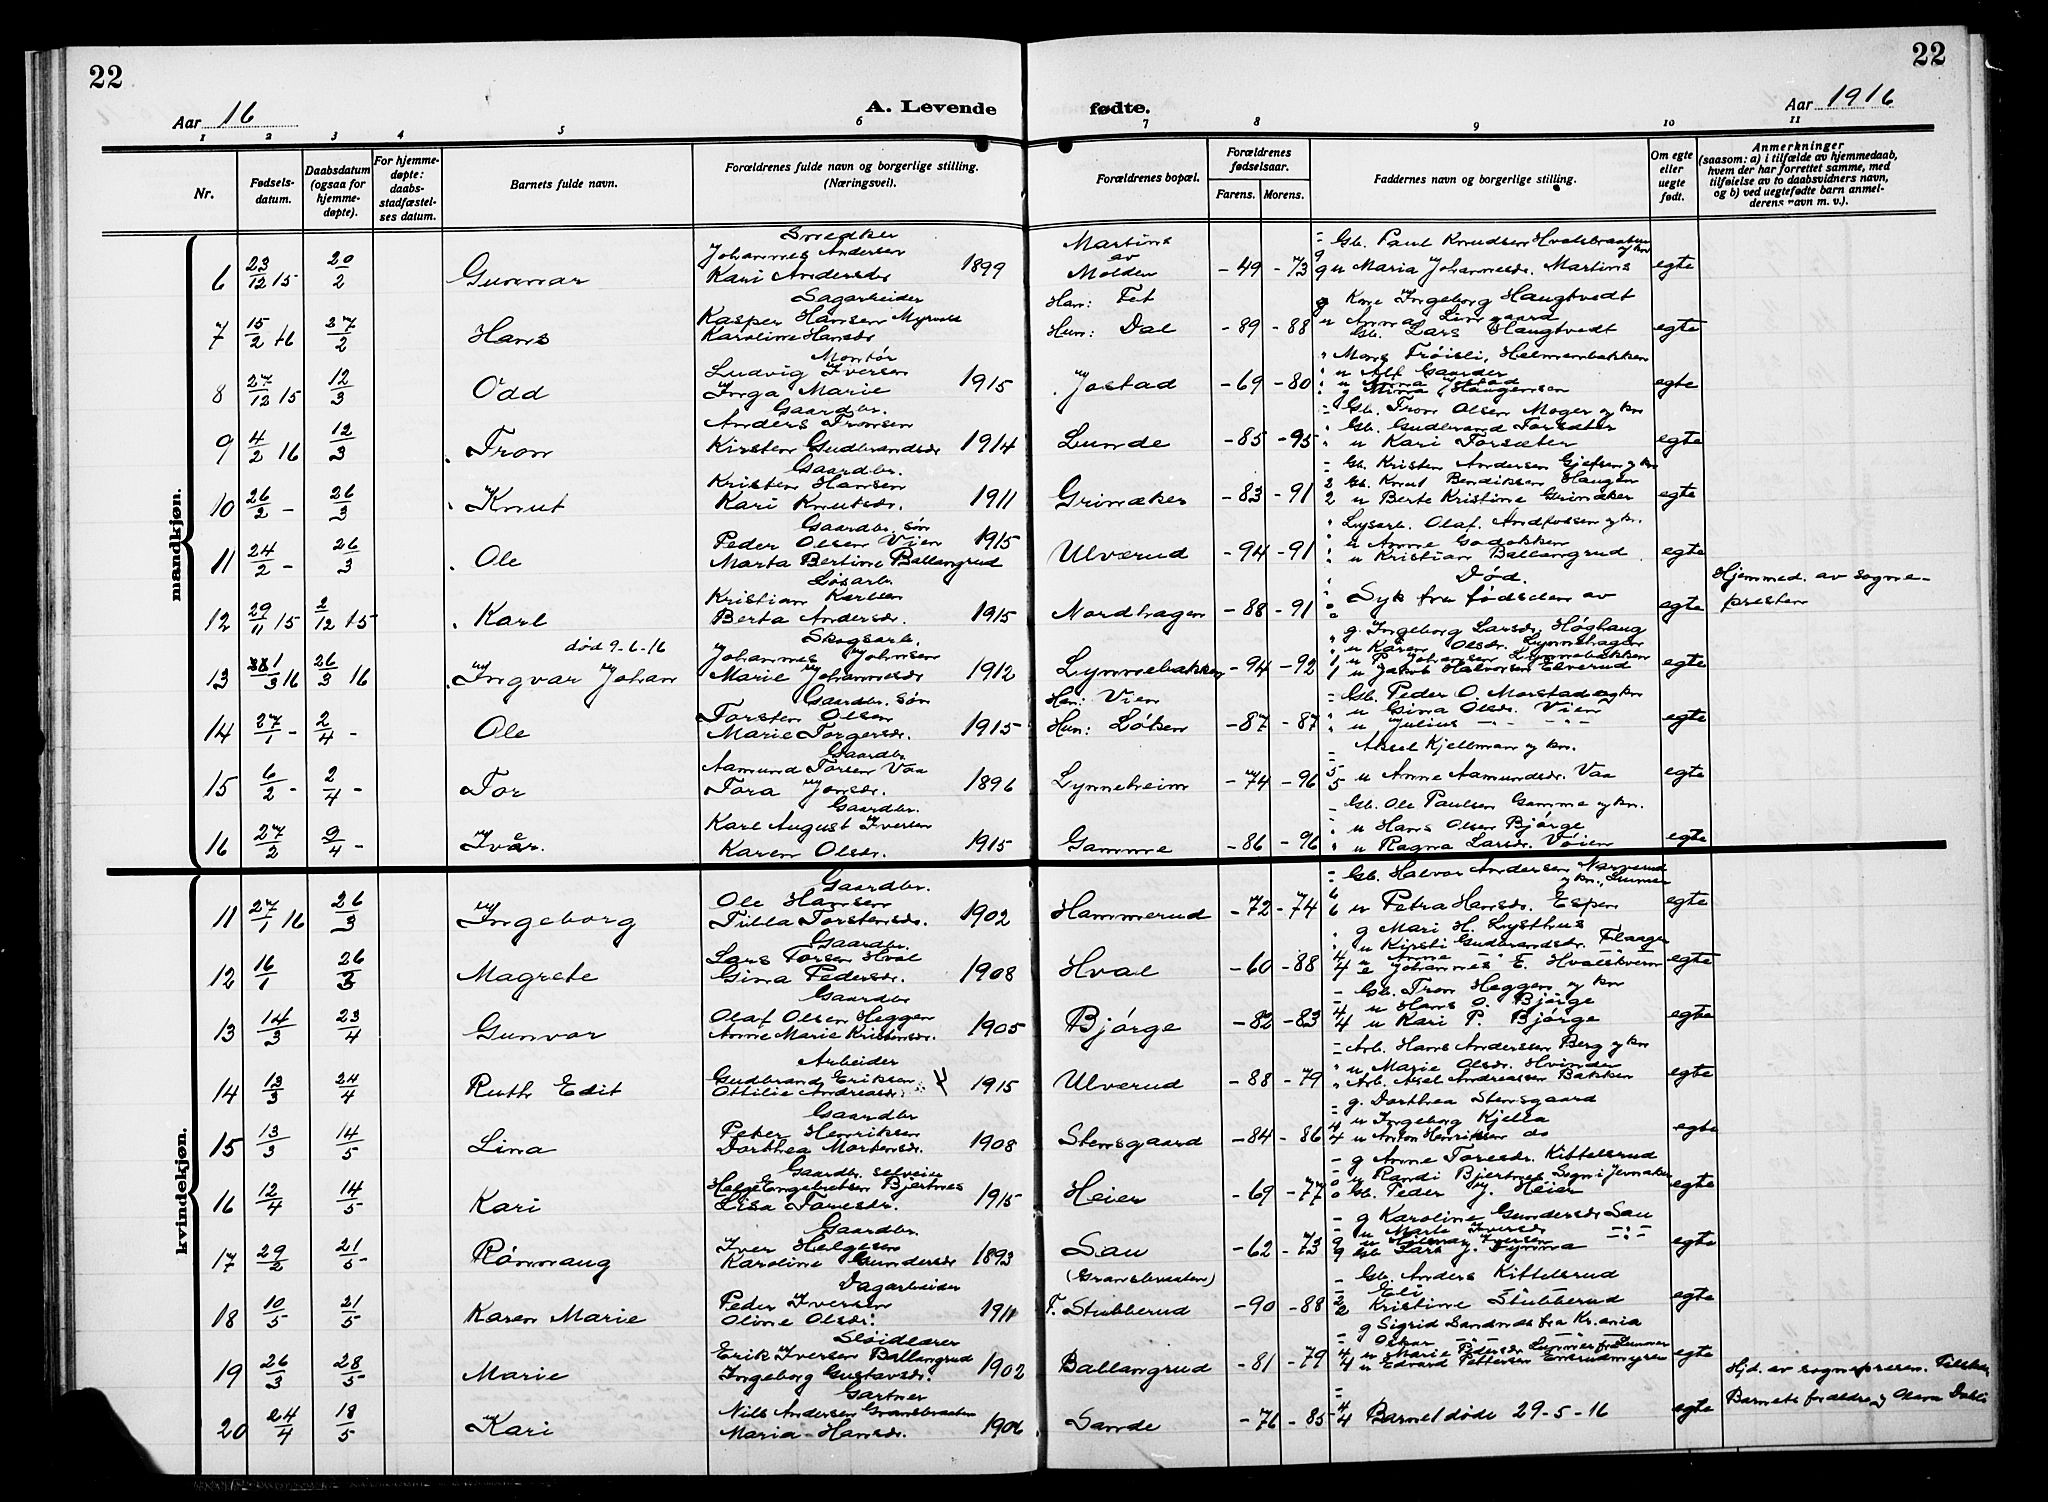 22
22
Aar 16
A. Levende fødte.
Aar 1916
1 2 3 4 5 6 7 8 9 10 11
Nr.
Fødsels-
datum.
Daabsdatum
(ogsaa for
hjemme-
døpte).
For hjemme-
døpte:
daabs-
stadfæstel-
ses datum.
Barnets fulde navn.
Forældrenes fulde navn og borgerlige stilling.
(Næringsvei).
Forældrenes bopæl.
Forældrenes
fødselsaar.
Farens. Morens.
Faddernes navn og borgerlige stilling.
Om egte
eller
uegte
født.
Anmerkninger
(saasom: a) i tilfælde av hjemmedaab,
hvem der har forrettet samme, med
tilføielse av to daabsvidners navn,
og b) ved uegtefødte barn anmel-
derens navn m. v.).
mandkjøn.
Snedker
Johannes Andersen
Martins
Gb. Paul Knudsen Hvalsbraaten
6 23/12 15 20/2 Gunnar Kari Andersdr 1899 av Molden -49 -73 u Maria Johannesdr. Martins egte
Sagarbeider
Kasper Hansen Myrvold
Han: Fet
Kone Ingeborg Haugtvedt
7 15/2 16 27/2 Hans Karoline Hansdr Hun: Dal -89 -88 Gb. Lars Haugtvedt egte
Montør
Ludvig Iversen
Mons Trøisli, Helmenbakken
u Alf Gaarder
8 27/12 15 12/3 Odd Inga Marie 1915 Jostad -69 -80 u Anna Jostad egte
Gaardbr.
Anders Tronsen
Gb. Tron Olsen Moger y kn
Gb. Gudbrand Torsæter
9 4/2 16 12/3 Tron Kirsten Gudbrandsdr 1914 Lunde -85 -95 u Kari Torsæter egte
Gaardbr.
Kristen Hansen
Gb. Kristen Andersen Gjefsen y kn
Gb. Knut Bendiksen Haugen
10 26/2 - 26/3 Knut Kari Knutsdr. 1911 Grinaker -83 -91 u Berte Kristine Grinaker egte
Gaardbr. søn
Peder Olsen Vien 1915
u Anne Godokken
11 24/2 - 26/3 Ole Marta Bertine Ballangrud Ulverud -94 -91 u Kristian Ballangrud egte
Løsarb.
Kristian Karlsen
Død.
Syk fra fødselen av
Hjemmed. av sogne-
presten
12 29/11 15 2/12 15 Karl Berta Andersdr. 1915 Nordhagen -88 -91 egte
død 9-6-16
Skogsarb.
Johannes Johnsen
g. Ingeborg Larsdr. Høghaug
u Karen Olsdr. Lynnehagen
u P. Johansen Lynnebakken
13 1/3 16 26/3 16 Ingvar Johan Marie Johannesdr 1912 Lynnebakken -94 -92 u Jakob Halvorsen Elverud egte
Gaardbr. søn
Torsten Olsen
Han: Vien
Gb. Peder O. Morstad y kn
u Gina Olsdr. Vien
14 27/1 - 2/4 - Ole Marie Torgersdr. 1915 Hun: Løken -87 -87 u Julius egte
Gaardbr
Aamund Torsen Vaa
Aksel Kjellman y kn.
15 6/2 - 2/4 - Tor Tora Jonsdr. 1896 Lynneheim -74 -96 u Anne Aamundsdr. Vaa egte
Gaardbr.
Karl August Iversen
Gb. Ole Paulsen Gamme y kn.
u Hans Olsen Bjørge
16 27/2 9/4 - Iver. Karen Olsdr. 1915 Gamme -86 -96 u Ragna Larsdr. Vøien egte
kvindekjøn.
Gaardbr.
Ole Hansen
Gb. Halvor Andersen
y kn., Lunner
11 27/1 16 26/3 Ingeborg Tilla Torstensdr. 1902 Hammerud -72 -74 u Petra Hansdr. Espen egte
Gaardbr.
Lars Torsen Hval
g Mari H. Lysthus
u Kirsti Gudbrandsdr. Flaagen
12 16/1 26/3 Magrete Gina Pedersdr. 1908 Hval -60 -88 Johannes E. Hvalskvern egte
Gaardbr
Olaf Olsen Heggen
Gb. Tron Heggen y kn
u Hans O. Bjørge
13 14/3 23/4 Gunvor Anne Marie Kristensdr. 1905 Bjørge -82 -83 u Kari P. Bjørge egte
Arbeider
Gudbrand Eriksen
Arb. Hans Anderssen Berg y kn
u Marie Olsdr. Hvinden
14 13/3 24/4 Ruth Edit Ottilie Andreasdr. 1915 Ulverud -88 -79 Arb. Aksel Andreassen Bakken egte
Gaardbr
Peter Henriksen
g. Dorthea Stensgaard
u Ingeborg Kjelsa
15 13/3 14/5 Lina Dorthea Mortensdr. 1908 Stensgaard -84 -86 u Anton Henriksen do egte
Gaardbr. selveier
Helge Engebretsen Bjertnes
g Anne Toresdr. Kittelsrud
u Randi Bjertnes Sogn i Jevnaker
16 12/4 14/5 Kari Lisa Toresdr. 1915 Heier -69 -77 Gb. Peder J. Heier egte
Gaardbr.
Iver Helgesen
g Karoline Gundersdr Sau
u Marte Iversdr
u Hilmar Iversen
17 29/2 21/5 Rønnaug Karoline Gundersdr 1893 Sau -62 -73 Gb. Lars J. Dynna egte
Dagarbeider
Peder Iversen
(Gransbraaten)
Gb. Anders Kittelsrud
Eli
18 10/5 21/5 Karen Marie Oline Olsdr. 1911 F. Stubberud -90 -88 Kristine Stubberud egte
Sløidlærer
Erik Iversen Ballangrud
g Sigrid Sandnes fra Kr.ania
Oskar
19 26/3 28/5 Marie Ingeborg Gustavsdr. 1902 Ballangrud -81 -79 u Edvard Pettersen egte
Hjd. av sognepresten.
Gartner
Nils Andersen Gransbraaten
Barnets forældre y
20 24/4 18/5 Kari Maria Hansdr. 1906 Sande -76 -85 Barnet døde 29-5-16 egte